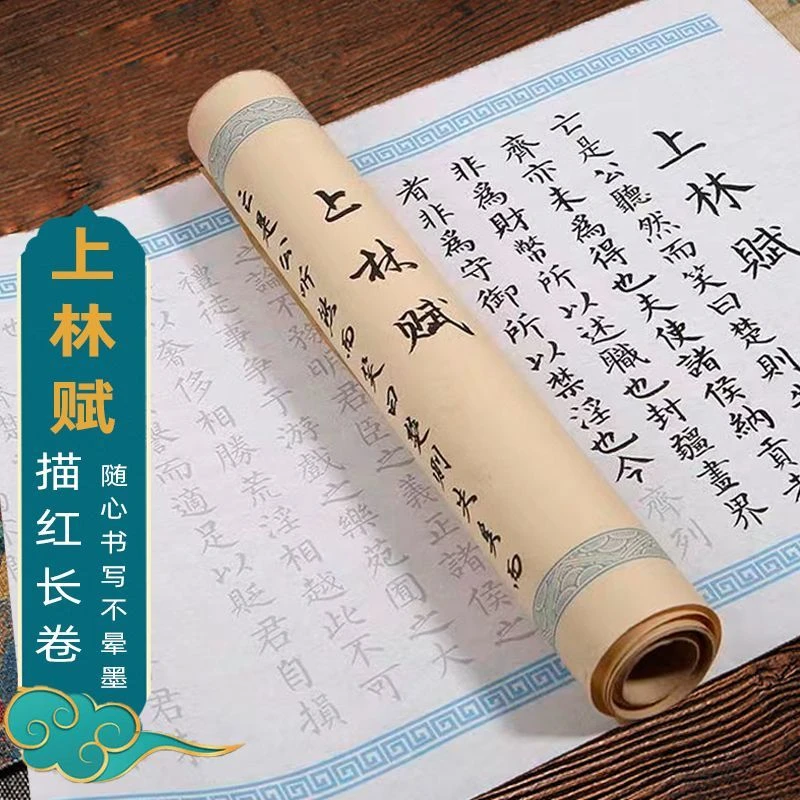 上林赋
描红长卷
随心书写不晕墨
上林赋
亡是公听然而笑曰楚则失矣而
上林賦
亡是公聽然而笑曰楚則
齊亦未爲得也夫使諸侯納貢者
非爲財幣所以述職也封疆畫界
者非爲守御所以禁淫也今
齊列
之論不務明君臣之義正諸侯之
禮徒事爭于游戲之樂苑囿之大
以奢侈相勝荒淫相越此不可
譽而適足以貶君自損
君